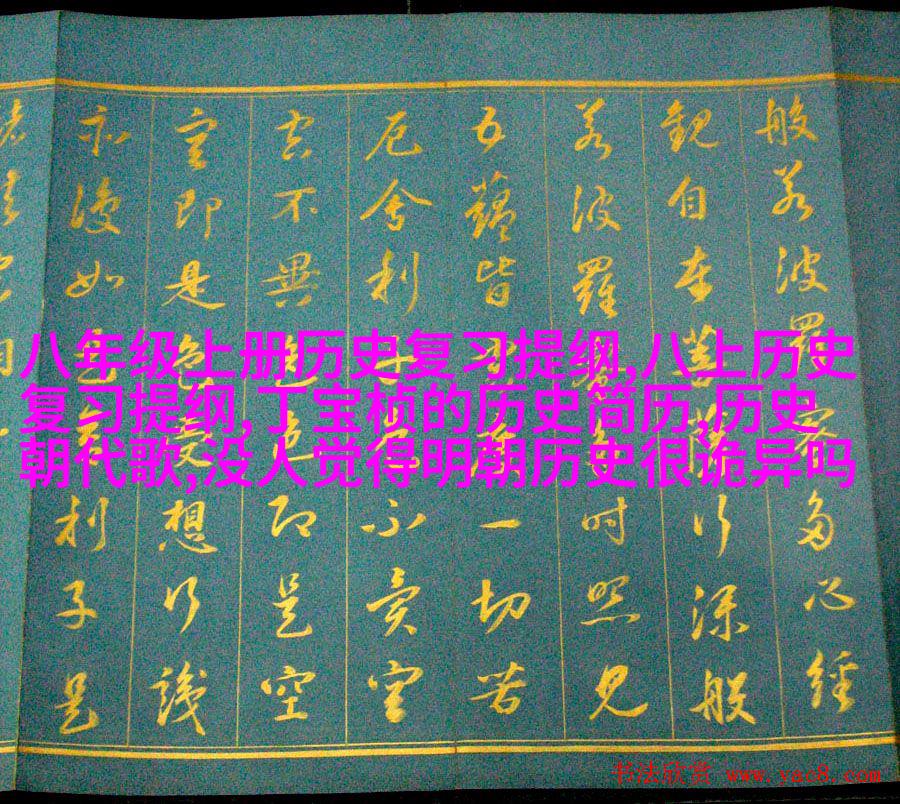 般若波羅蜜多心經
觀自在菩薩行深般
若波羅蜜多時照見
五蘊皆空度一切苦
厄舍利子色不異空
空不異色色即是空
空即是色受想行識
亦復如是舍利子是
八年级上册历史复习提纲,八上历史
复习提纲,丁宝桢的历史简历,历史
朝代歌,没人觉得明朝历史很诡异吗
书法欣赏 www.yac8.com